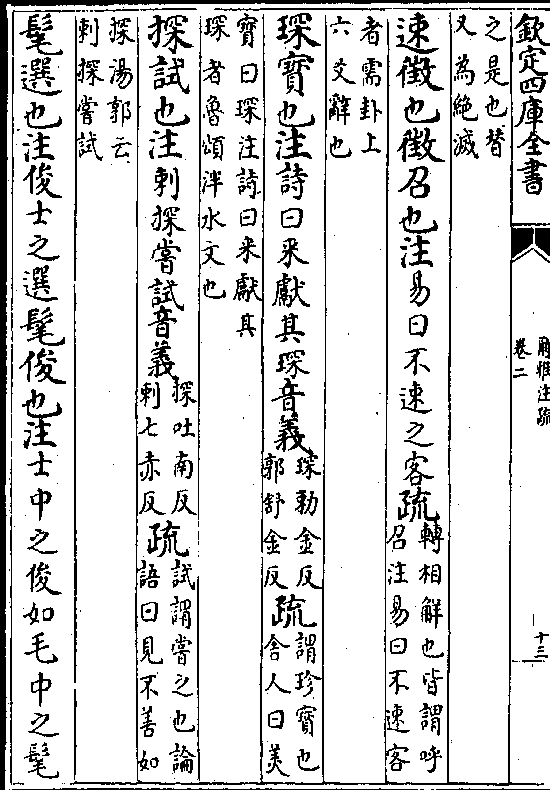 欽定四庫全書
爾雅注疏
卷二
十三
之是也替
又為絶滅
速徵也徵召也注易曰不速之客疏
轉相解也皆謂呼
召注易曰不速客
者需卦上
六爻辭也
琛寶也注詩曰來獻其琛音義
琛勅金反
郭舒金反
疏
謂珍寶也
舍人曰美
寶曰琛注詩曰來獻其
琛者魯頌泮水文也
探試也注刺探嘗試音義
探吐南反
刺七赤反
疏
試謂嘗之也論
語曰見不善如
探湯郭云
刺探嘗試
髦選也注俊士之選髦俊也注士中之俊如毛中之髦